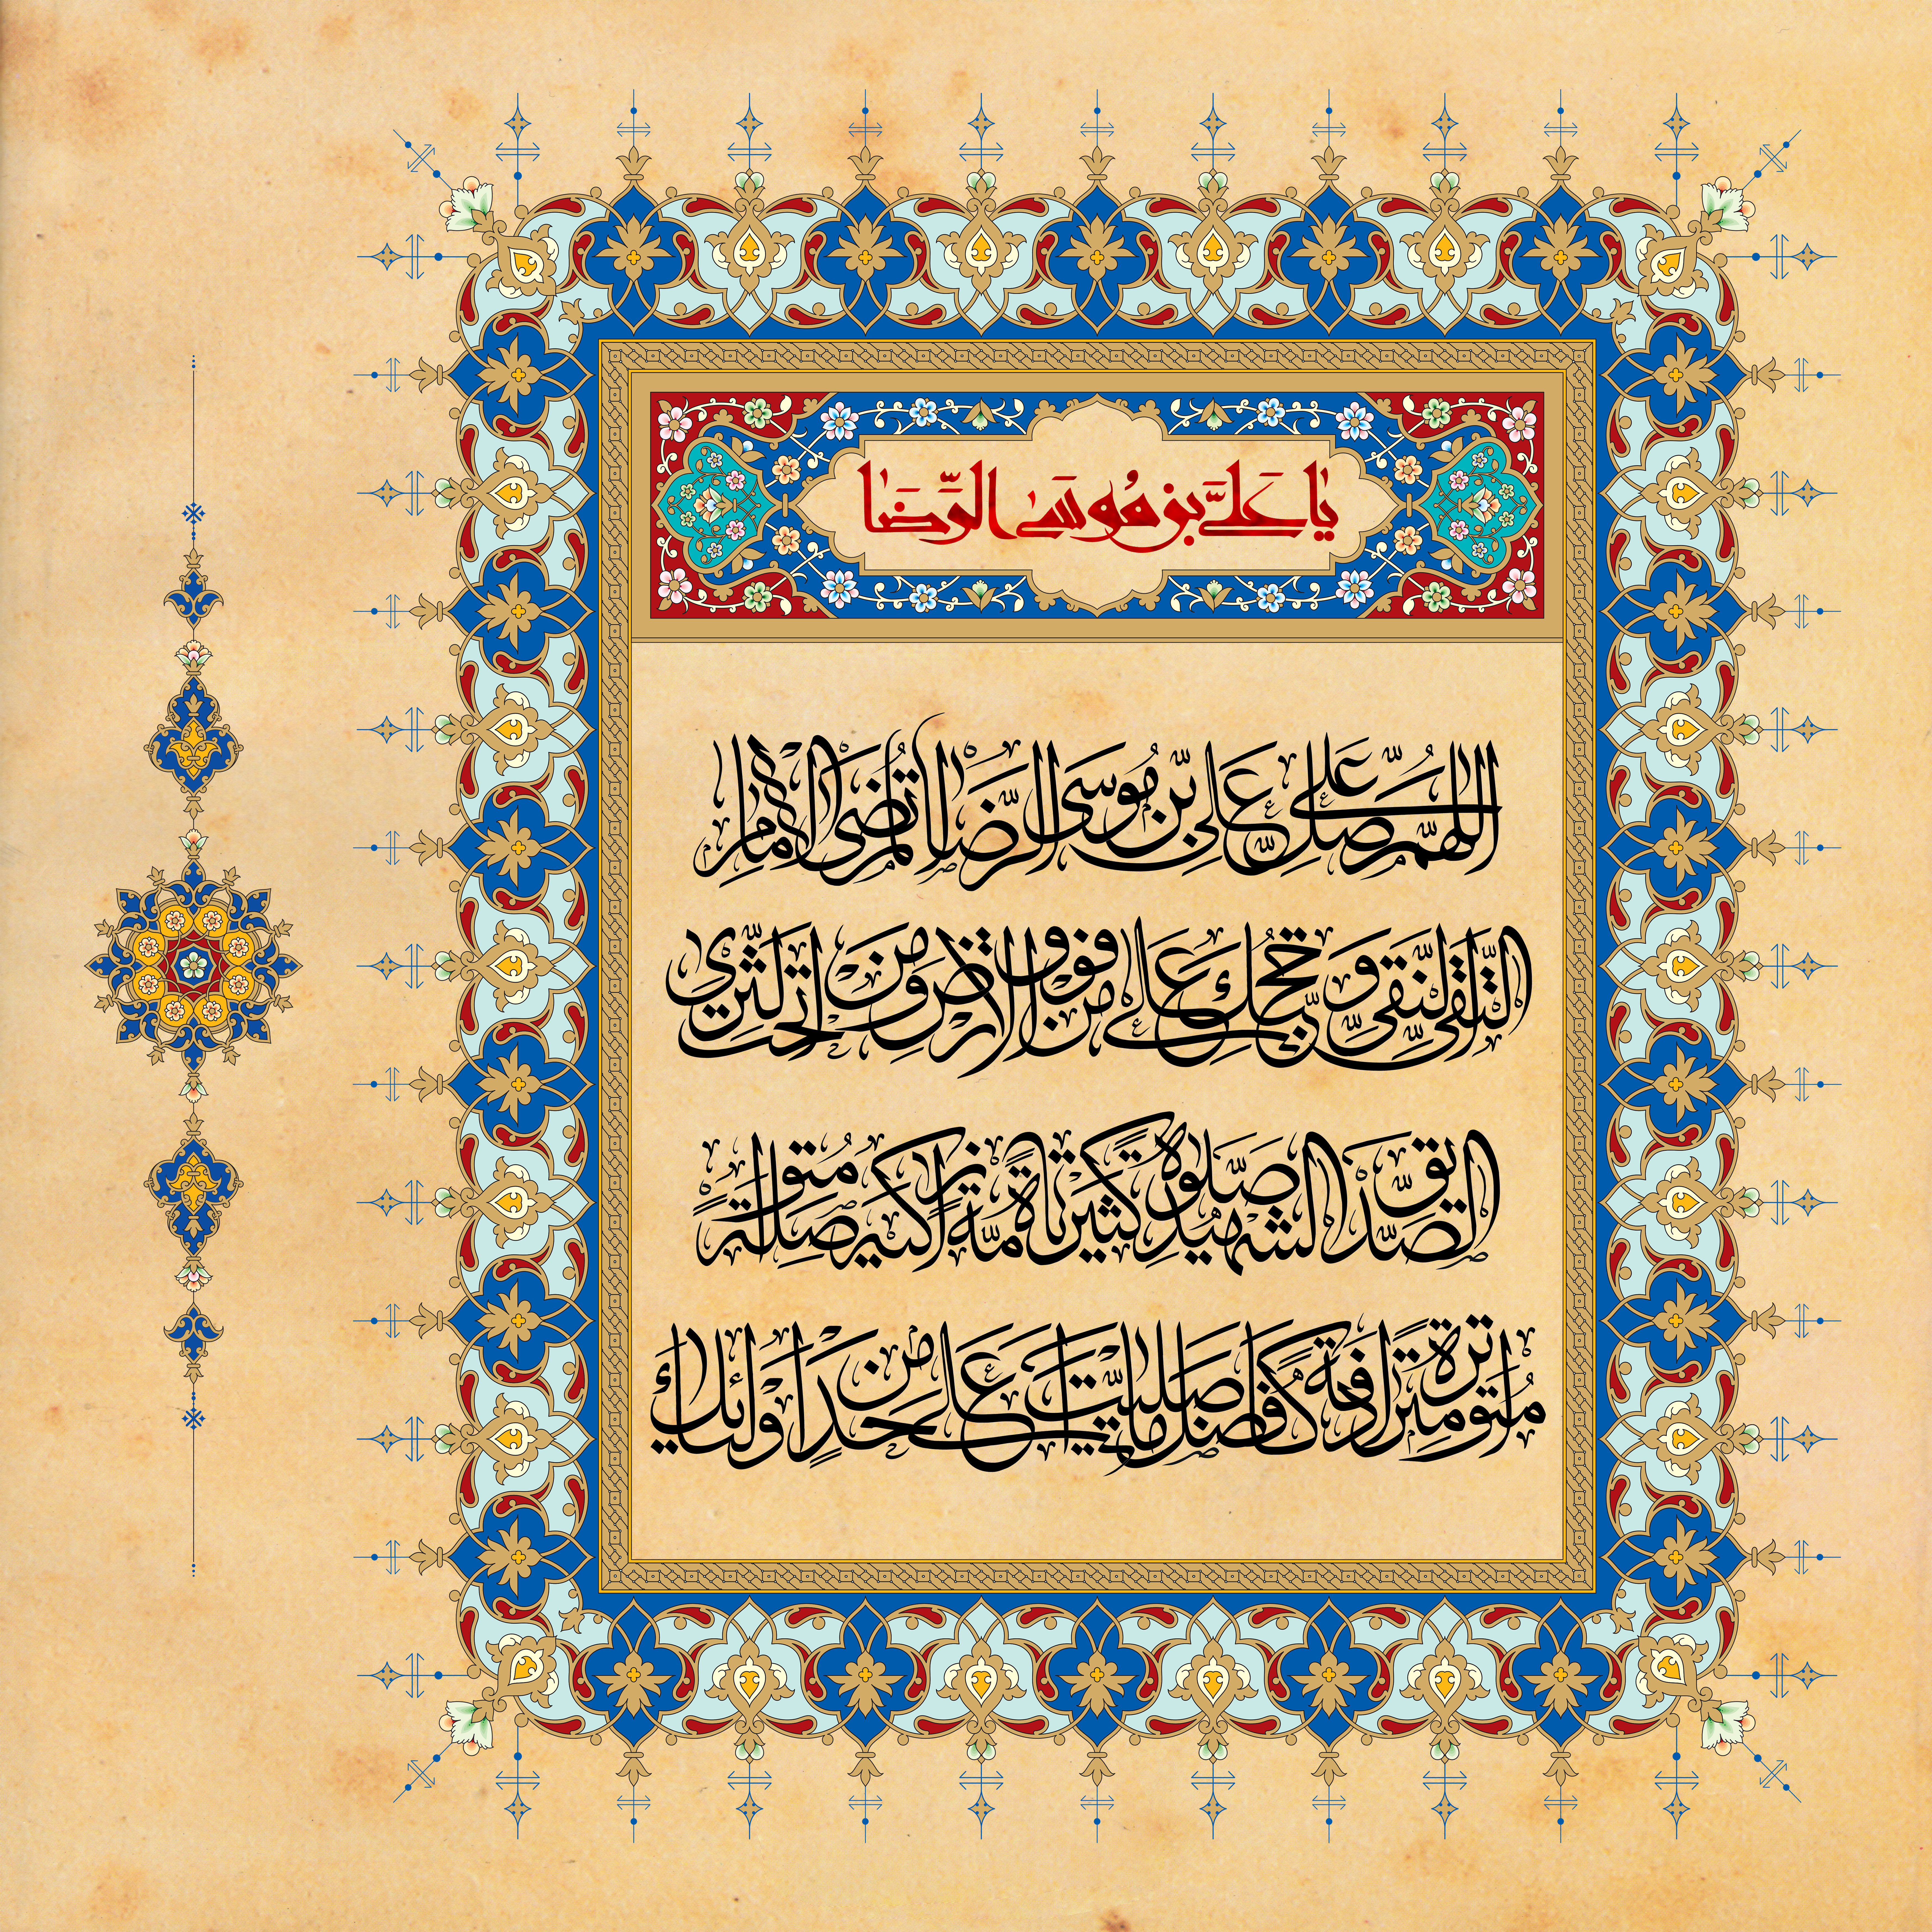 یا علی بن موسی الرضا
اللهم صل علی علی بن موسی الرضا المرتضی الامام
التقی النقی و حجتک علی من فوق الارض و من تحت الثری
الصدیق الشهید صلوة کثیرة تامة زاکیة متواصلة
متواترة مترادفة کافضل ما صلیت علی احد من اولیائک